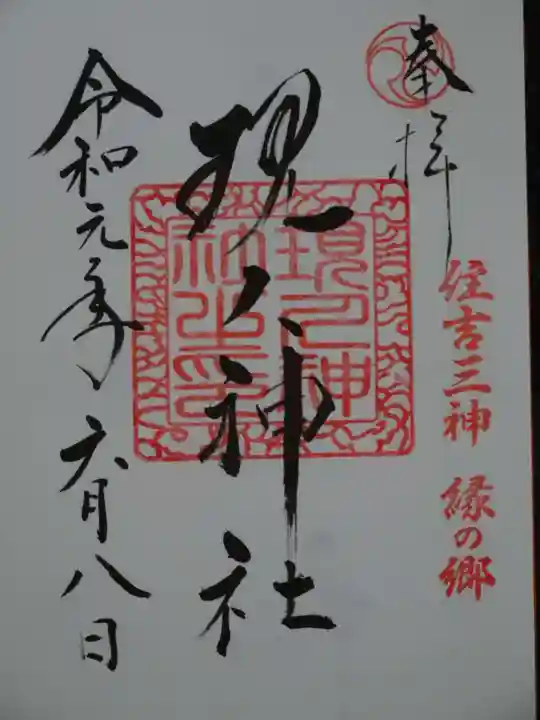 奉拝
住吉三神 縁の郷
現人神社
現人神社之印
令和元年六月八日